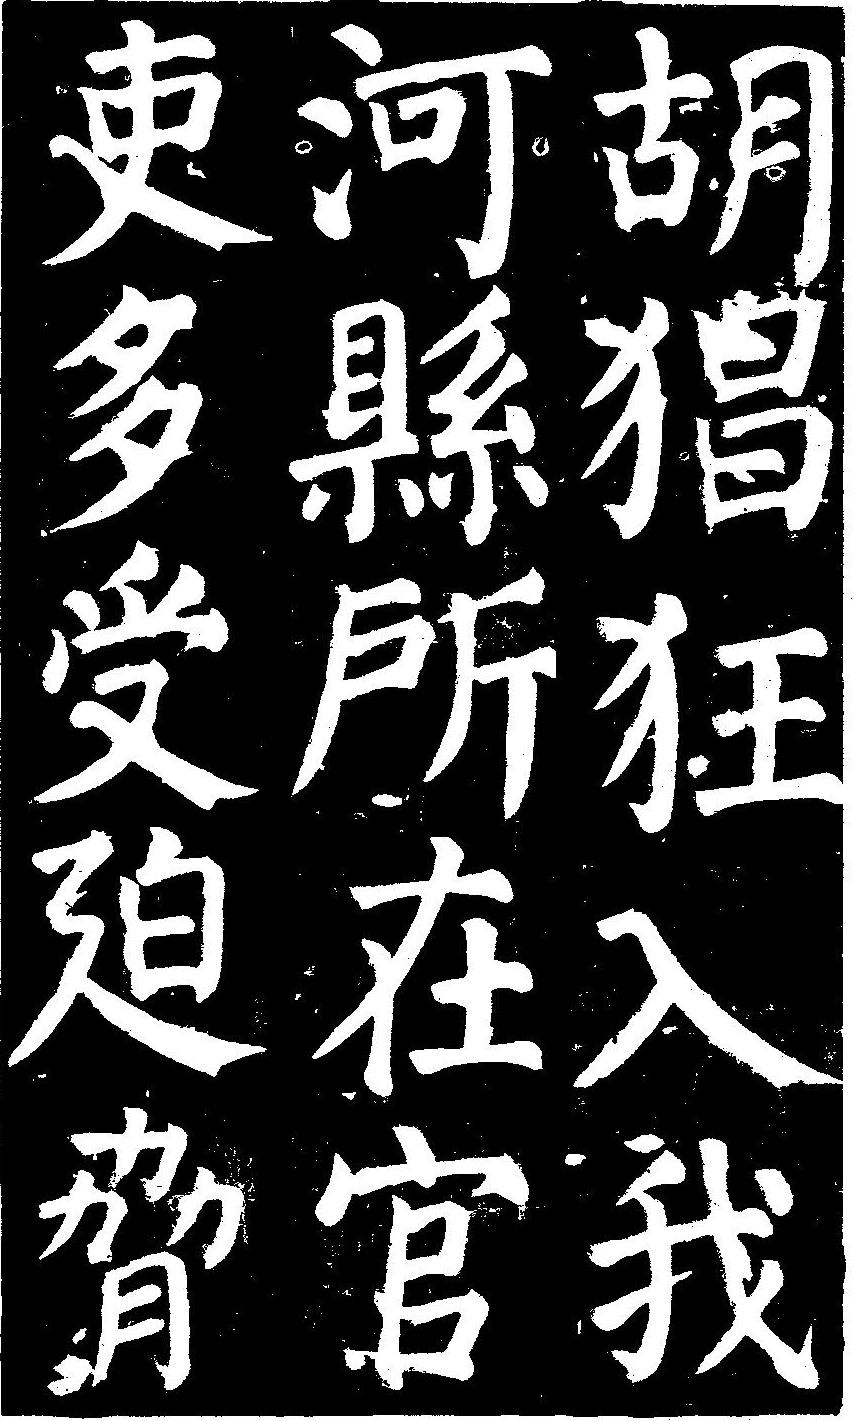 胡猖狂入我
河縣所在官
吏多受廹脅